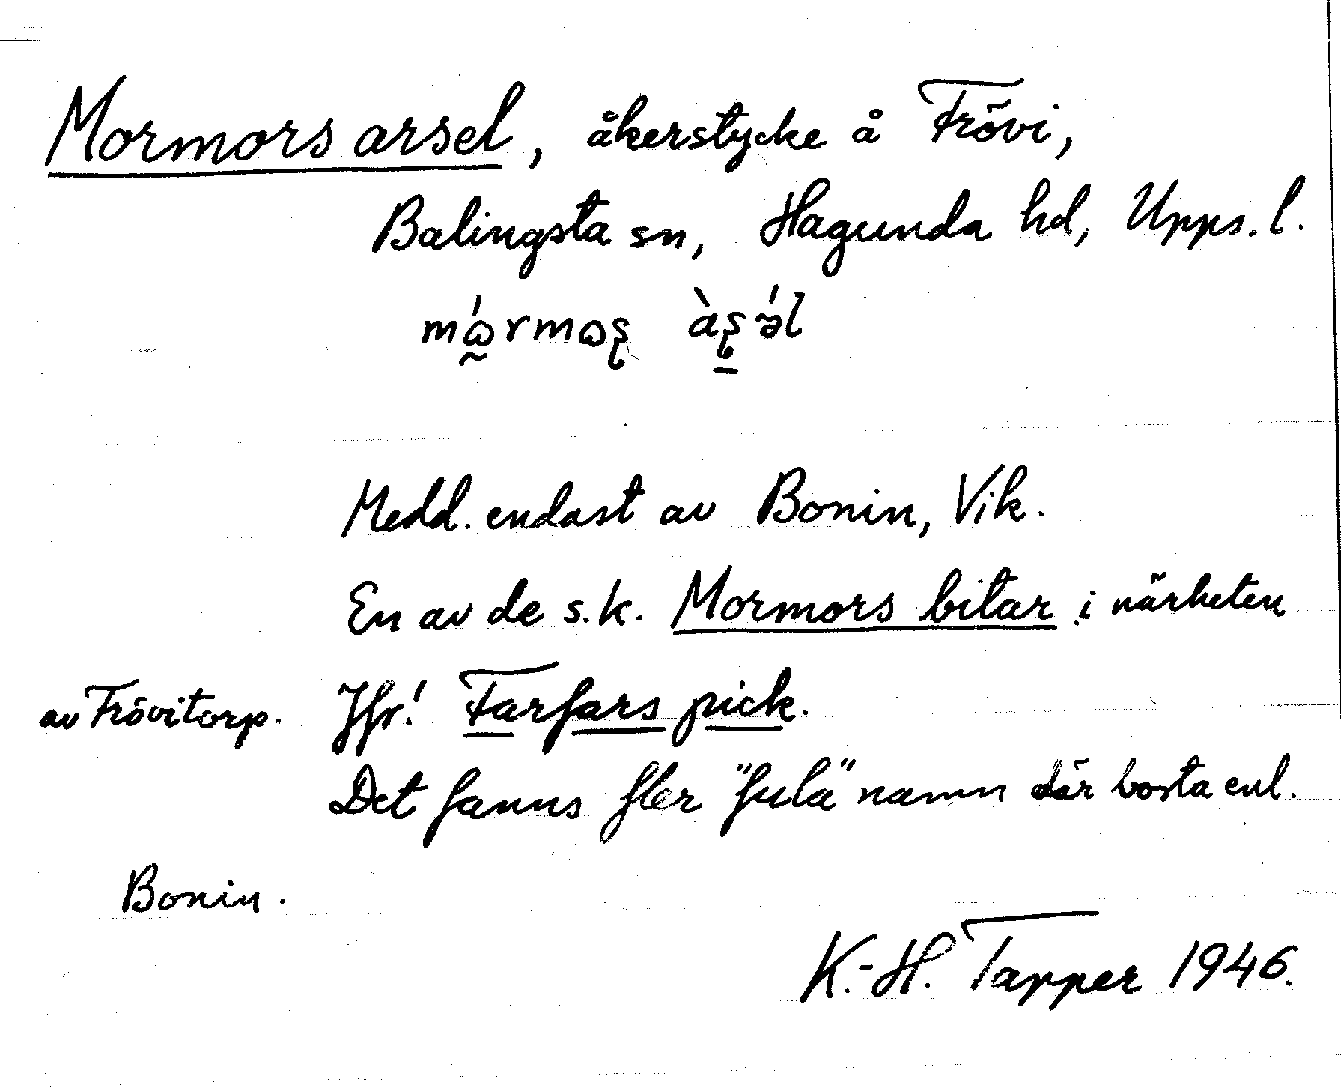 Mormors arsel, åkerstycke å Frövi,
Balingsta sn, Hagunda hd, Upps. l.
Medd. endast av Bonin, Vik.
En av de s.k. Mormors bitar i närheten
av Frövitorp. Jfr! Farfars pick.
Det fanns fler "fula" namn där borta enl.
Bonin.
K.-H. Tapper 1946.